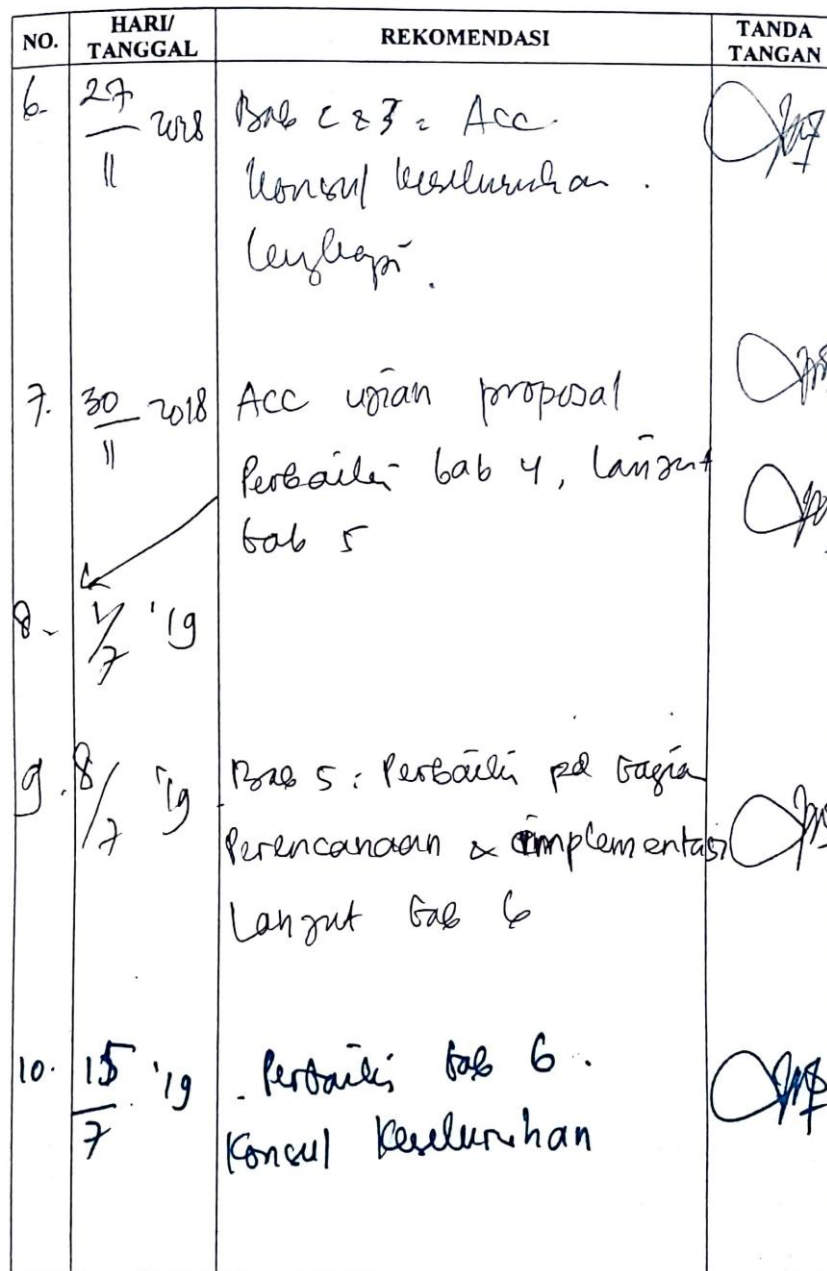 NO. HARI/ TANGGAL REKOMENDASI TANDA TANGAN
6. 27/11 2018 Bab 2 & 3 : Acc.
Konsul keseluruhan.
Lengkapi.
7. 30/11 2018 Acc ujian proposal
Perbaiki bab 4, lanjut
bab 5
8. 1/7 '19
9. 8/7 '19 Bab 5 : Perbaiki pd bagian
Perencanaan & implementasi
Lanjut bab 6
10. 15/7 '19 Perbaiki bab 6.
Konsul Keseluruhan